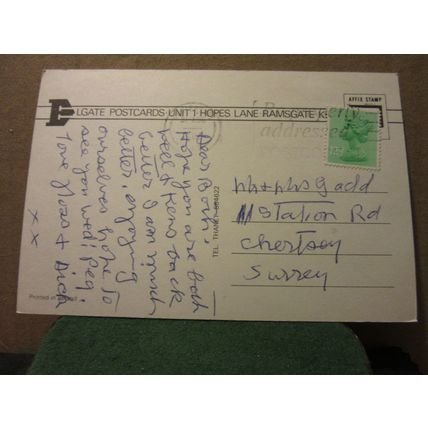 ELGATE POSTCARDS·UNIT 1·HOPES LANE RAMSGATE K
AFFIX STAMP
addressed
Hope you are both
well & Kens back
better I am much
better, enjoying
ourselves hope to
see you wed; Peg;
love & Dick
x x
Mr & Mrs Gadd
11 Station Rd
Chertsey
Surrey
TEL. THANET 604022
Printed in